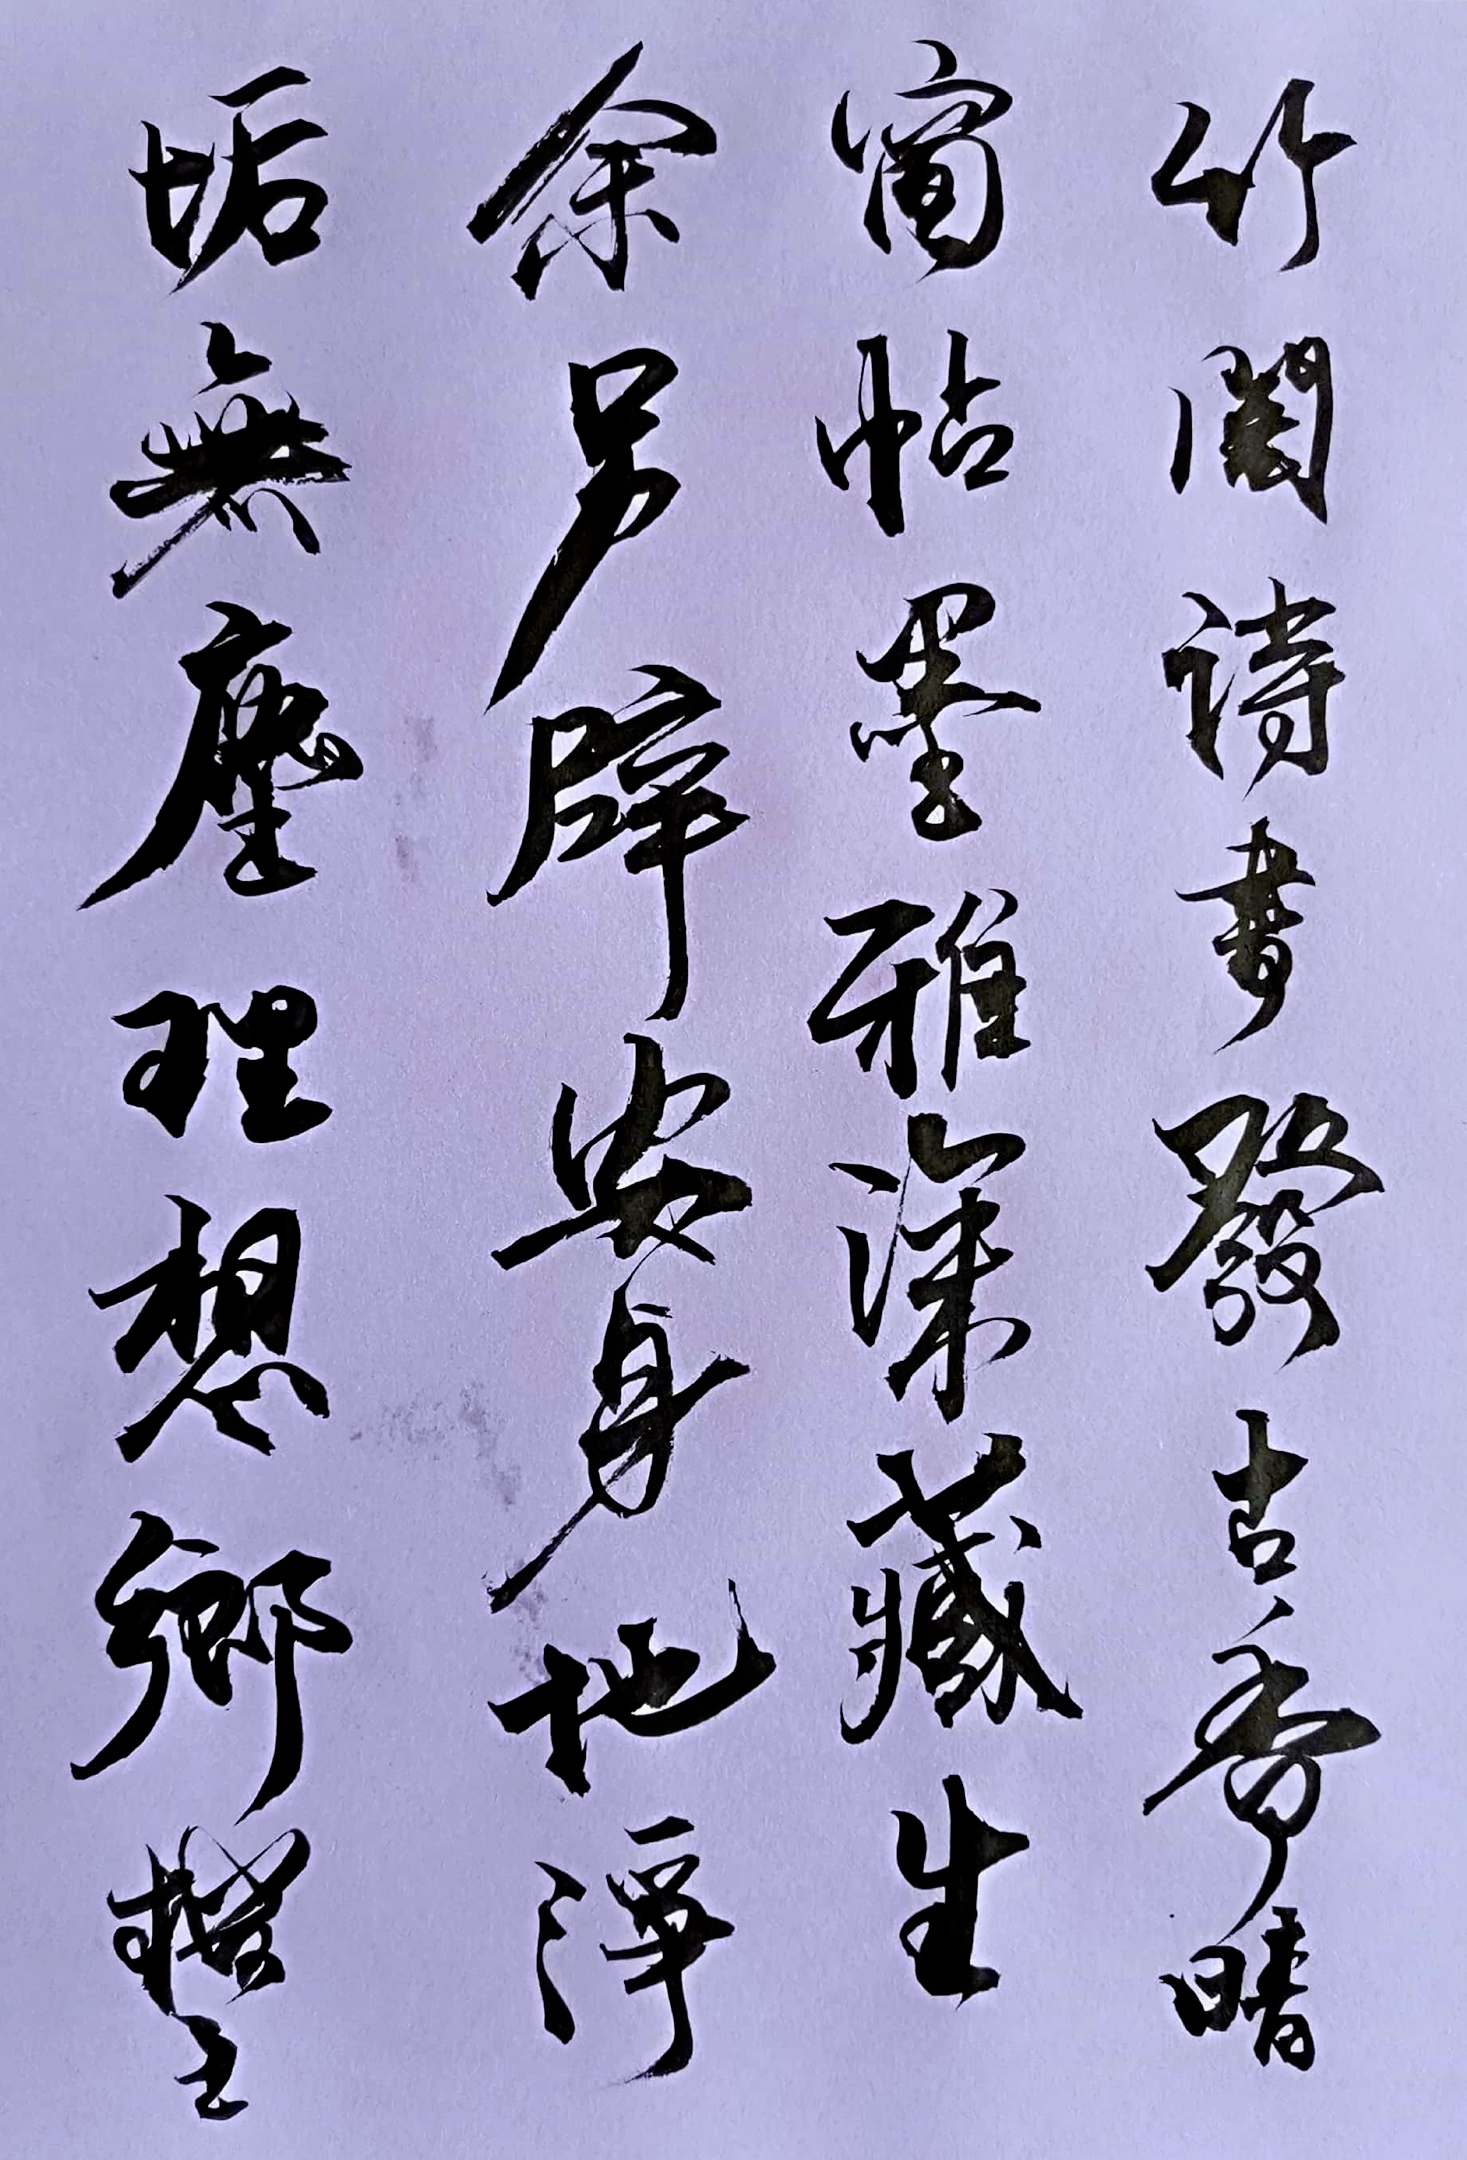 竹閣詩書發古香晴
窗帖墨雅深藏生
余另辟安身地淨
垢無塵理想鄉